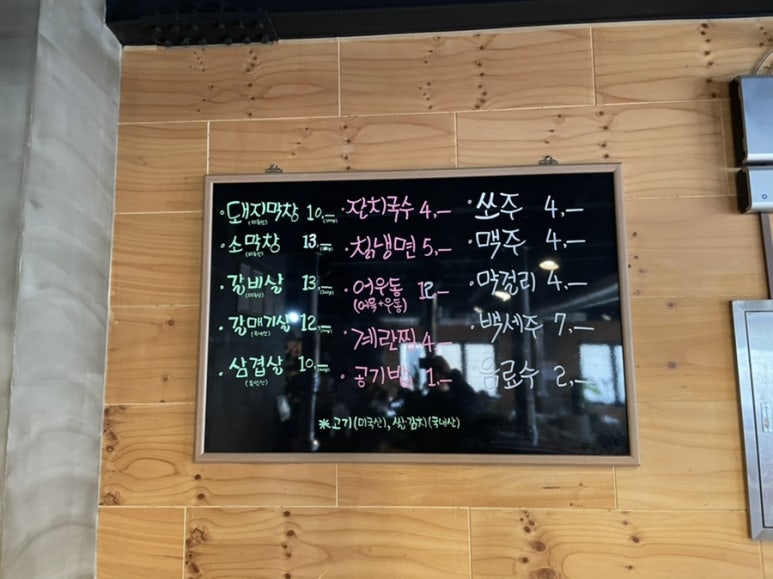 ·돼지막창 10,—
(미국산)
·소막창 13,—
(미국산)
·갈비살 13,—
(미국산)
·갈매기살 12,—
·삼겹살 10,—
·잔치국수 4,—
·칡냉면 5,—
·어우동 12,—
(어묵+우동)
·계란찜 4,—
·공기밥 1,—
·쏘주 4,—
·맥주 4,—
·막걸리 4,—
·백세주 7,—
·음료수 2,—
※고기(미국산), 쌀,김치(국내산)